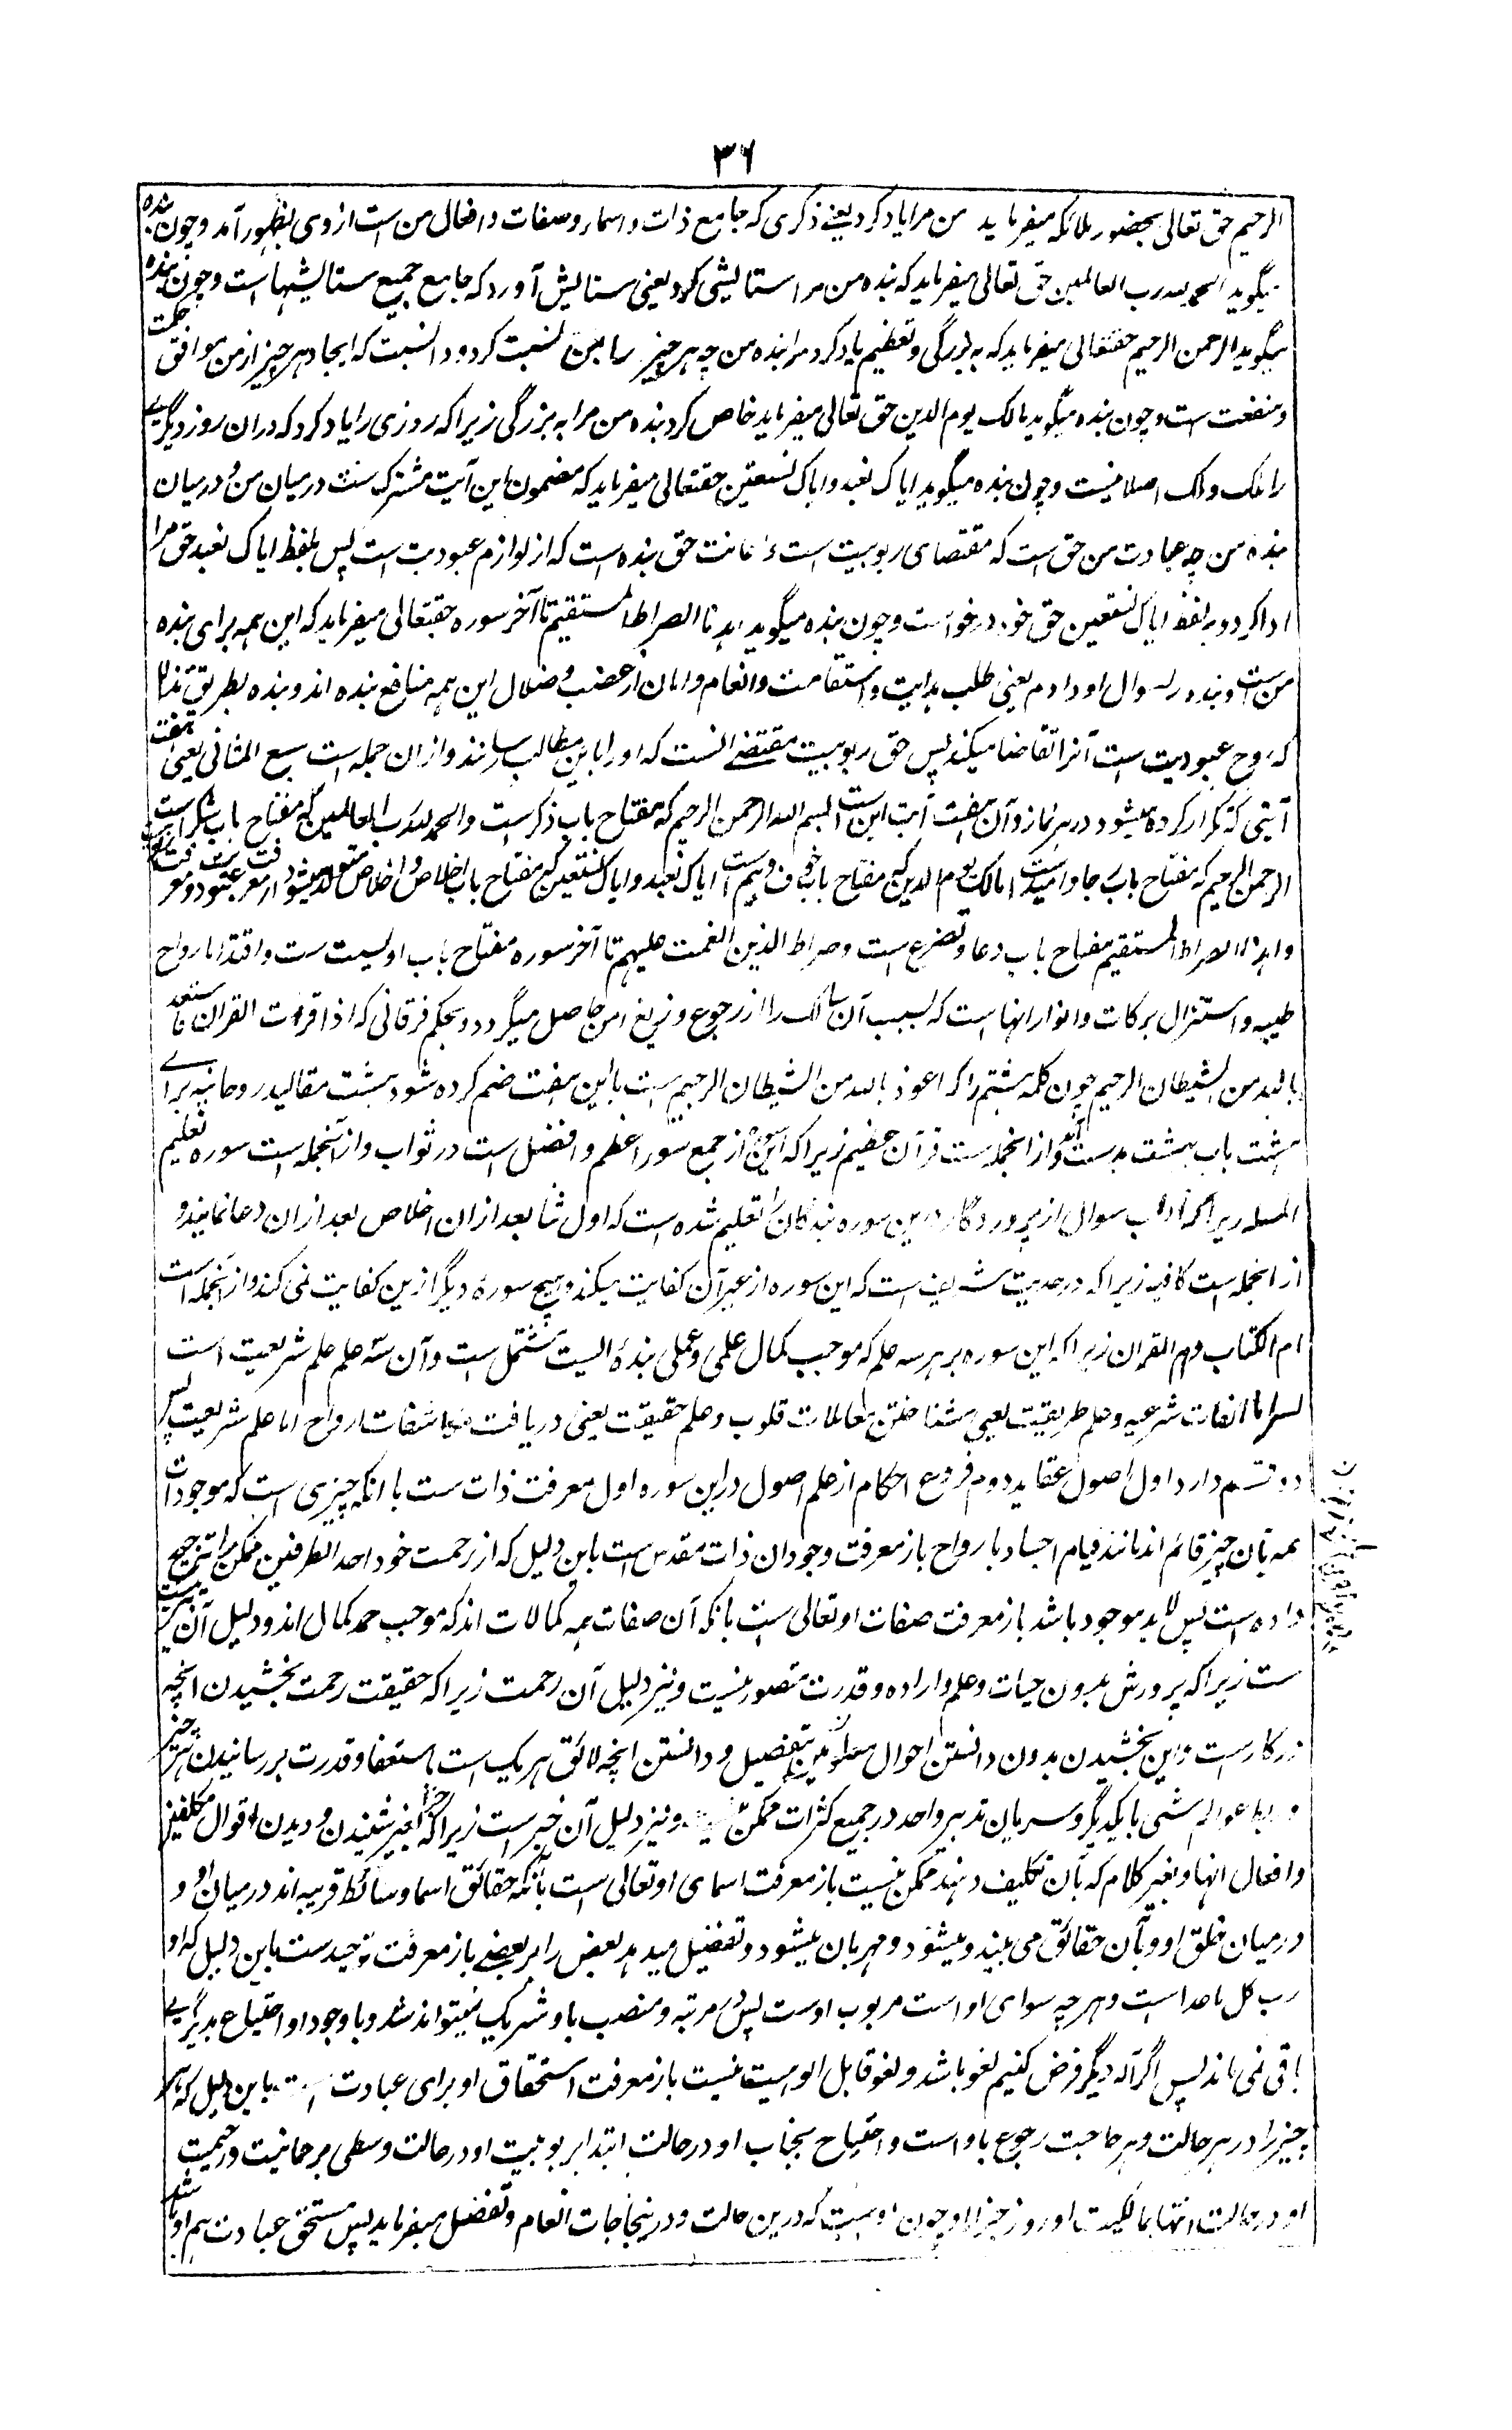 ٣٦
الرحیم حق تعالی بحضور ملائکه میفرماید من مرا یاد کرد یعنے ذکری که جامع ذات و اسما و صفات و افعال من است از وی بظهور آمد و چون بنده
میگوید الحمد لله رب العالمین حق تعالی میفرماید که بنده من مرا ستایشی کرد یعنی ستایش آورد که جامع جمیع ستایشها است و چون بنده
میگوید الرحمن الرحیم حقتعالی میفرماید که به بزرگی و تعظیم یاد کرد مرا بنده من چه هر چیز را بمن نسبت کرد و دانست که ایجاد هر چیز از من موافق حکمت
و منفعت ست و چون بنده میگوید مالک یوم الدین حق تعالی میفرماید خاص کرد بنده من مرا به بزرگی زیرا که روزی را یاد کرد که دران روز دیگریے
را ملک و ملک اصلا نیست و چون بنده میگوید ایاک نعبد و ایاک نستعین حقتعالی میفرماید که مضمون این آیت مشترک ست درمیان من و درمیان
بنده من چه عبادت من حق است که مقتضای ربوبیت است و اعانت حق بنده است که از لوازم عبودیت است پس بلفظ ایاک نعبد حق مرا
ادا کرد و بلفظ ایاک نستعین حق خود درخواست و چون بنده میگوید اهدنا الصراط المستقیم تا آخر سوره حقتعالی میفرماید که این همه برای بنده
من است و بنده را سوال او دادم یعنی طلب هدایت و استقامت و انعام و امان از غضب و ضلال این همه منافع بنده اند و بنده بطریق تذلل
که روح عبودیت ست آنرا تقاضا میکند پس حق ربوبیت مقتضے آنست که او را باین مطالب رسانند و ازان جمله است سبع المثانی یعنی هفت
آیتی که تکرار کرده میشود در هر نماز و آن هفت آیت این است بسم الله الرحمن الرحیم که مفتاح باب ذکر ست و الحمد لله رب العالمین که مفتاح باب شکر است
الرحمن الرحیم که مفتاح باب رجا و امید ست مالک یوم الدین که مفتاح باب خوف و بیم است ایاک نعبد و ایاک نستعین که مفتاح باب اخلاص و اخلاص متولد میشود از معرفت عبودیت و معرفت ربوبیت
و اهدنا الصراط المستقیم مفتاح باب دعا و تضرع ست و صراط الذین انعمت علیهم تا آخر سوره مفتاح باب اویسیت ست و اقتدا بارواح
طیبه و استنزال برکات و انوار انها است که بسبب آن سالک را از رجوع و زیغ امن حاصل میگردد و بحکم فرقانی که اذا قرأت القران فاستعذ
بالله من الشیطان الرجیم چون کلمه هشتم را که اعوذ بالله من الشیطان الرجیم ست با این هفت ضم کرده شود هشت مقالید روحانیه برائے
هشت باب بهشت بدست آید و از انجمله ست قرآن عظیم زیرا که این سوره از جمیع سور اعظم و افضل است در ثواب و از آنجمله است سوره تعلیم
المسله زیرا که آداب سوال از پروردگار درین سوره بندگان را تعلیم شده است که اول ثنا بعد ازان اخلاص بعد ازان دعا نمایند و
از انجمله است کافیه زیرا که در حدیث شریف است که این سوره از غیر آن کفایت میکند و هیچ سورهٔ دیگر ازین کفایت نمی کند و از آنجمله است
ام الکتاب و ام القران زیرا که این سوره بر هر سه علم که موجب کمال علمی و عملی بنده است مشتمل ست و آن سه علم علم شریعت است
علم طریقت یعنی شناختن معاملات قلوب و علم حقیقت یعنی دریافت مکاشفات ارواح اما علم شریعت پس
دو قسم دارد اول اصول عقاید دوم فروع احکام از علم اصول دراین سوره اول معرفت ذات ست بانکه چیزی است که موجودات
همه بآن چیز قائم اند مانند قیام اجساد بارواح باز معرفت وجود ان ذات مقدس ست باین دلیل که از رحمت خود احد الطرفین ممکن را ترجیح
داده است پس لابد موجود باشد باز معرفت صفات او تعالی ست بانکه آن صفات همه کمالات اند که موجب حمد کمال اند و دلیل آن تربیت
ست زیرا که پرورش بدون حیات و علم و اراده و قدرت متصور نیست و نیز دلیل آن رحمت زیرا که حقیقت رحمت بخشیدن انچه
درکار ست و این بخشیدن بدون دانستن احوال مرحومین بتفصیل و دانستن انچه لائق هر یک است باستعفا و قدرت بر رسانیدن هر چیز
و ربط عوالم شتی با یکدیگر و سریان تدبیر واحد در جمیع کثرات ممکن نیست و نیز دلیل آن جزا است زیرا که جزا بغیر شنیدن و دیدن اقوال مکلفین
و افعال انها و بغیر کلام که بآن تکلیف دهند ممکن نیست باز معرفت اسمای او تعالی است بآنکه حقائق اسما وسائط قریبه اند درمیان او و
درمیان خلق او و بآن حقائق می بیند و میشنود و مهربان میشود و تفضیل میدهد بعض را بر بعضے باز معرفت توحید ست باین دلیل که او
رب کل ماعدا ست و هر چه سوای او است مربوب اوست پس در مرتبه و منصب با و شریک نمیتواند شد و با وجود او احتیاج بدیگریے
باقی نمی ماند پس اگر اله دیگر فرض کنیم لغو باشد و لغو قابل الوهیت نیست باز معرفت استحقاق او برای عبادت است باین دلیل که همه
چیز را در هر حالت و هر حاجت رجوع باو است و احتیاج بجناب او در حالت ابتدا بربوبیت او در حالت وسطی برحمانیت و رحیمیت
او در حالت انتها بمالکیت او روز جزا را و چون اوست که درین حالت و درینجا جات انعام و تفضل میفرماید پس مستحق عبادت هم او باشد